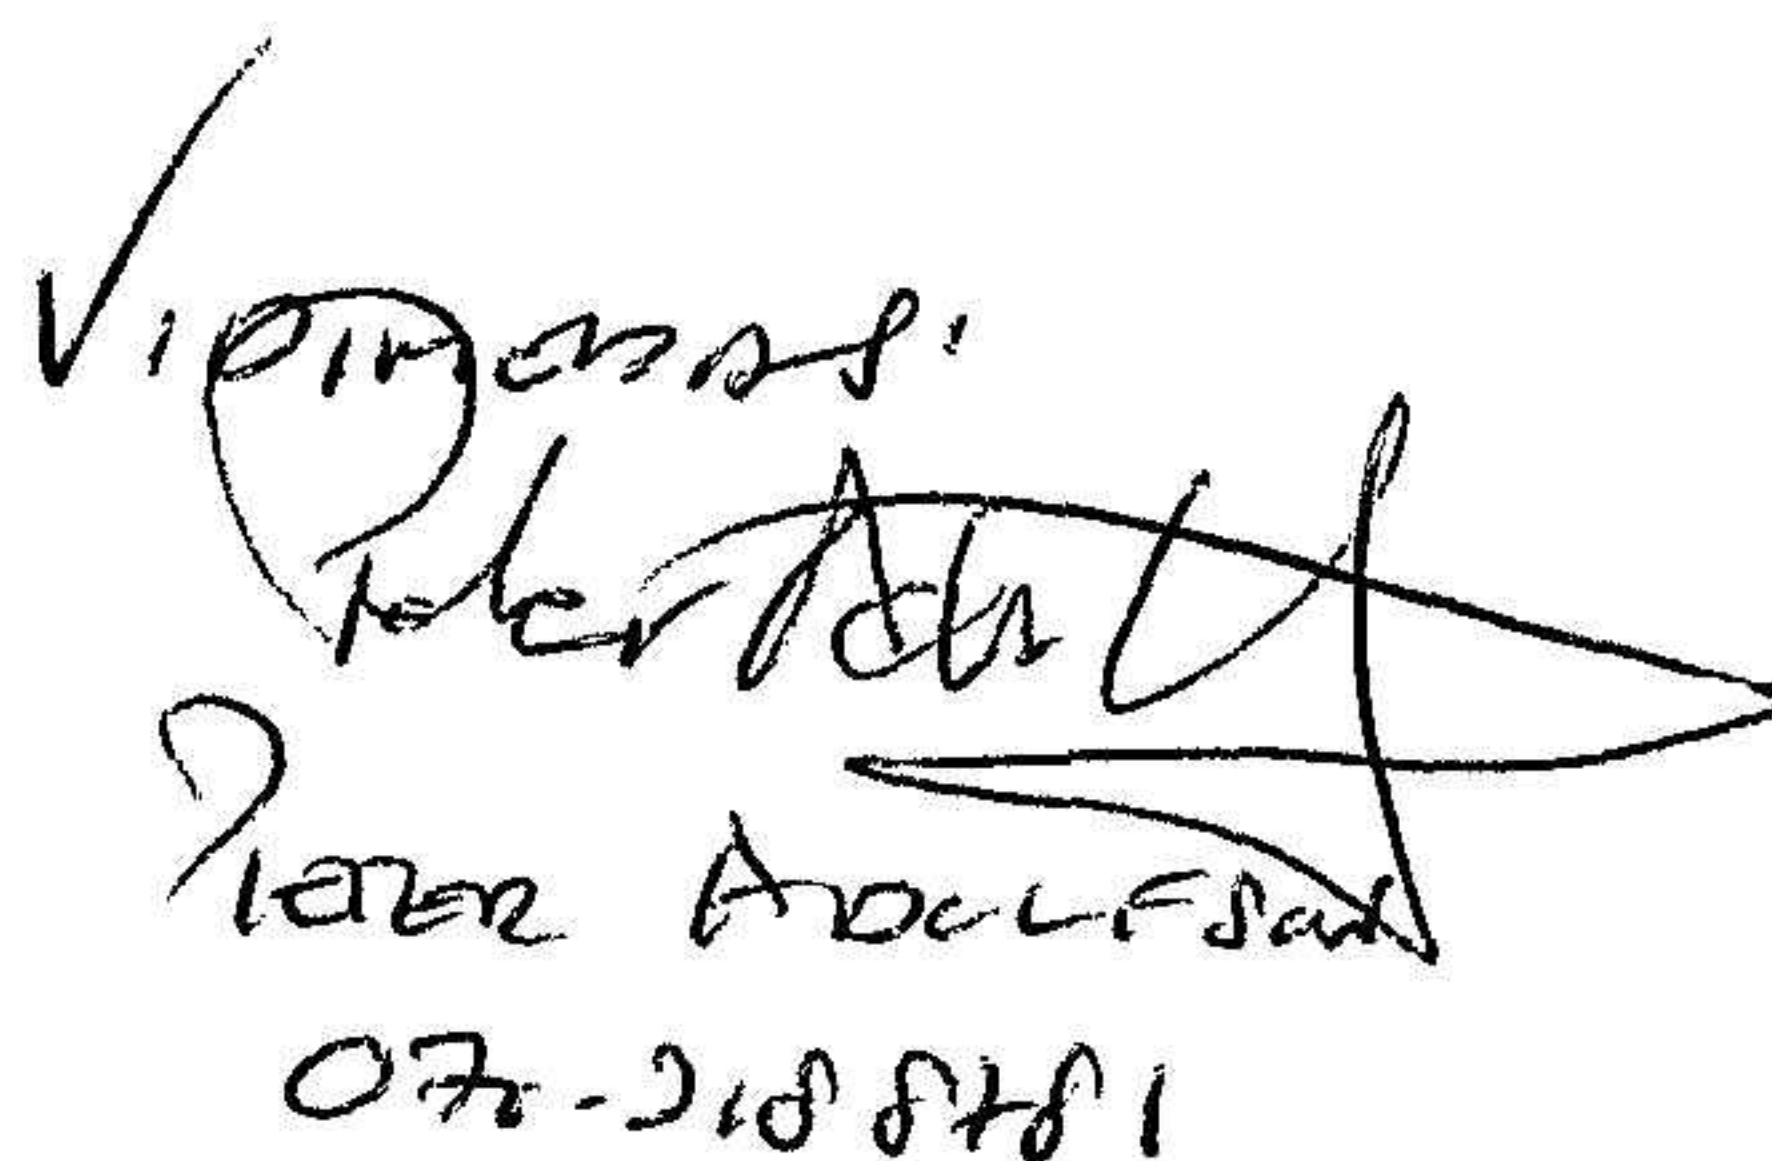 Vidimeras:
Peter Adolf
PETER ADOLFSON
070-2188781